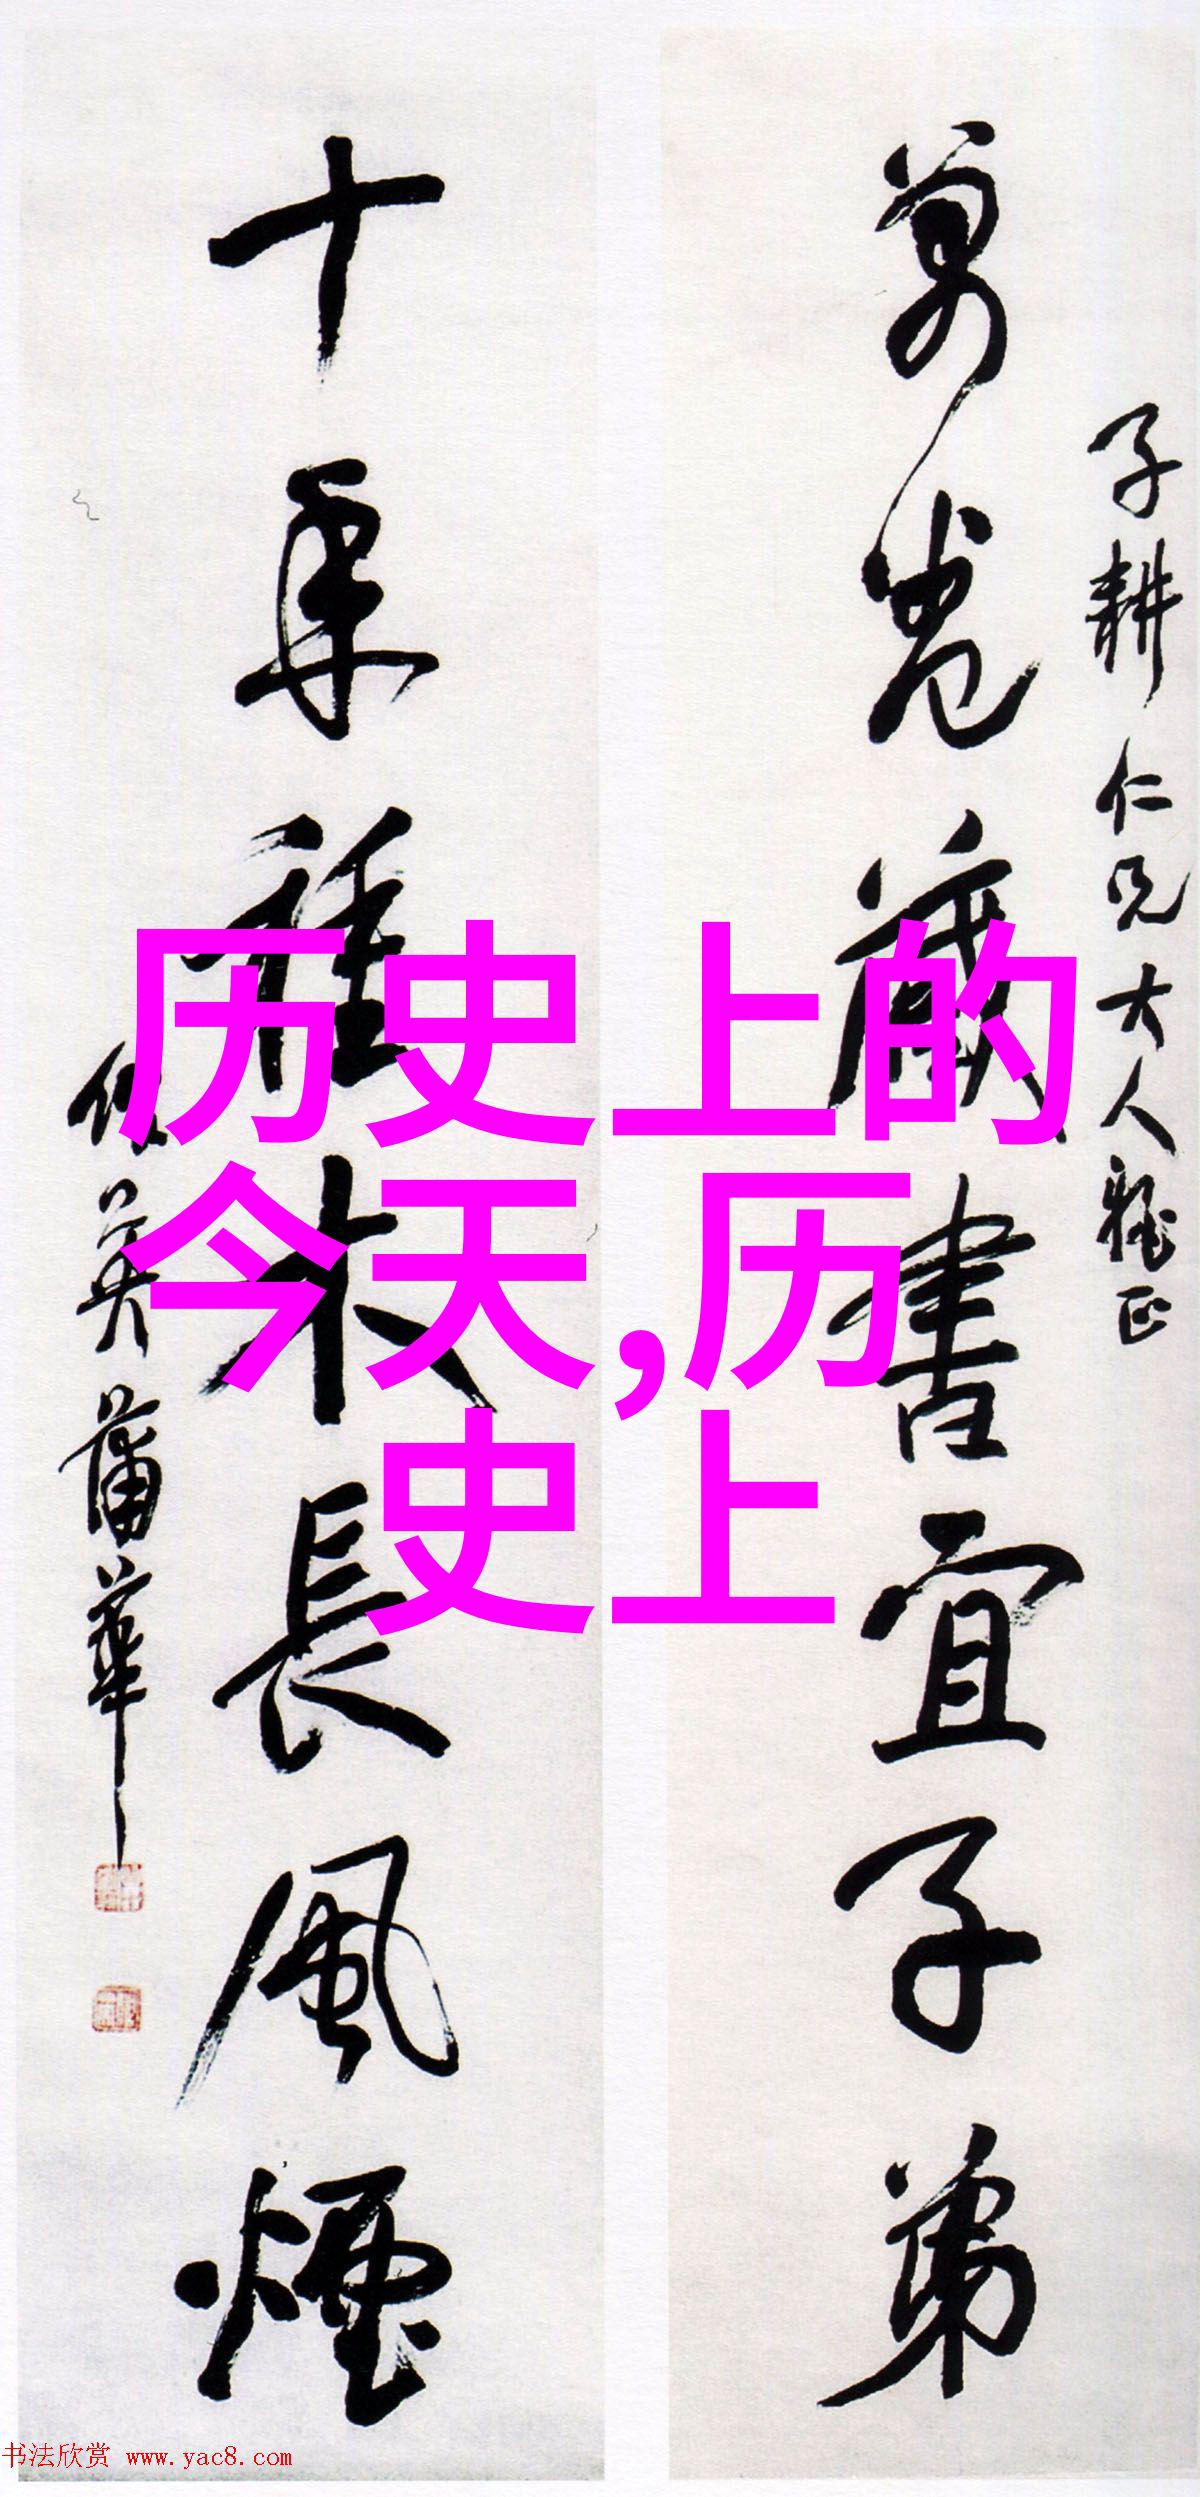 子耕仁兄大人雅正
萬卷藏書宜子弟
十年種木長風煙
作英蒲華
历史上的
今天,历
史上
书法欣赏 www.yac8.com